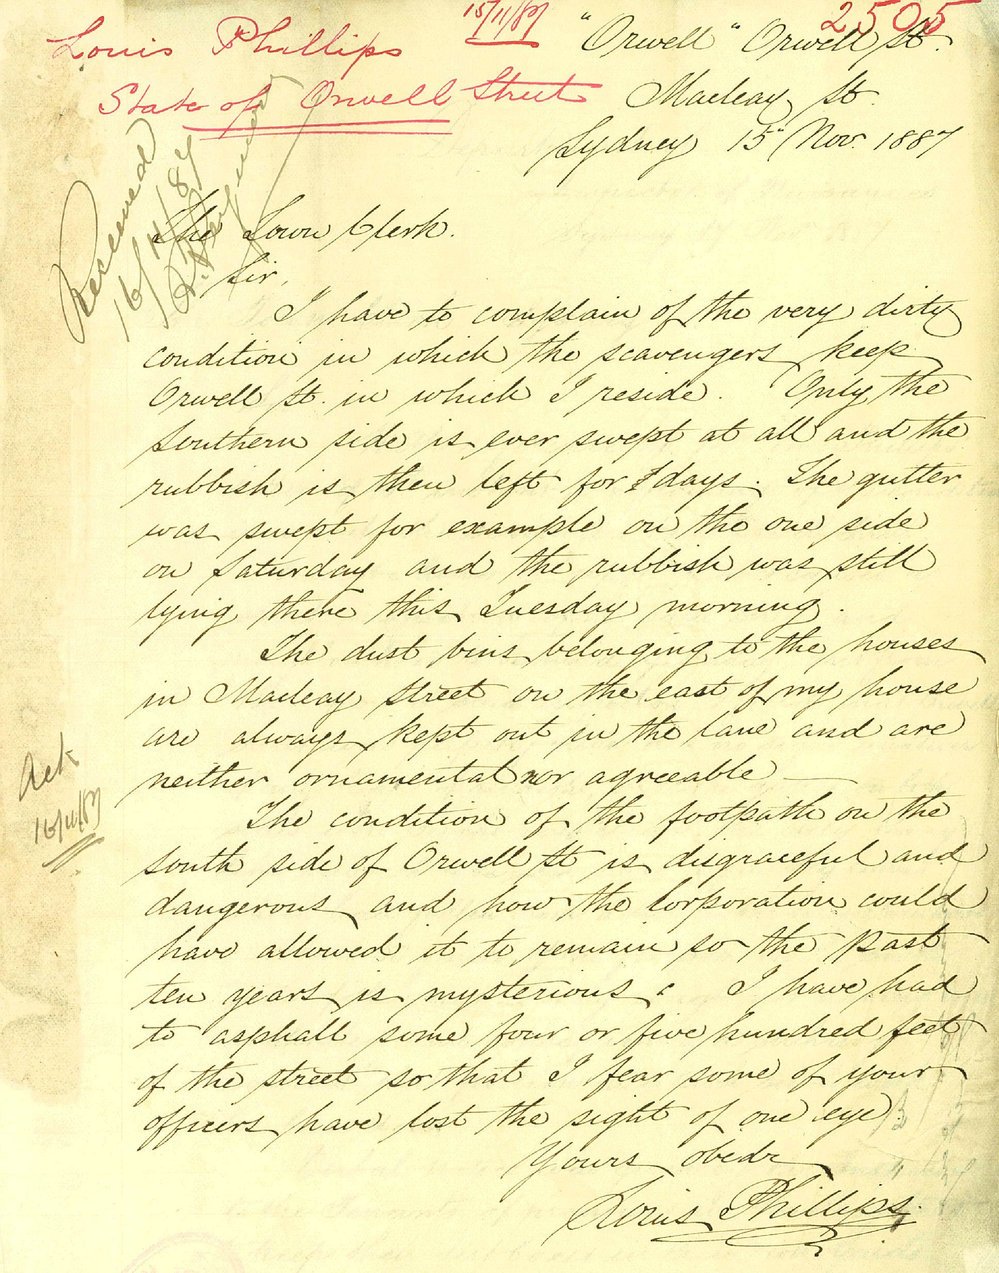 15/11/87
2505
Louis Phillips
State of Orwell Street
"Orwell" Orwell St.
Macleay St.
Sydney 15 Nov. 1887
Received
16/11/87
The Town Clerk.
Sir,
I have to complain of the very dirty
condition in which the scavengers keep
Orwell St. in which I reside. Only the
Southern side is ever swept at all and the
rubbish is then left for days. The gutter
was swept for example on the one side
on Saturday and the rubbish was still
lying there this Tuesday morning.
The dust bins belonging to the houses
in Macleay Street on the east of my house
are always kept out in the lane and are
neither ornamental nor agreeable
Ack
16/11/87
The condition of the footpath on the
south side of Orwell St is disgraceful and
dangerous and how the Corporation could
have allowed it to remain so the past
ten years is mysterious. I have had
to asphalt some four or five hundred feet
of the street so that I fear some of your
officers have lost the sight of one eye.
Yours obedr
Louis Phillips.